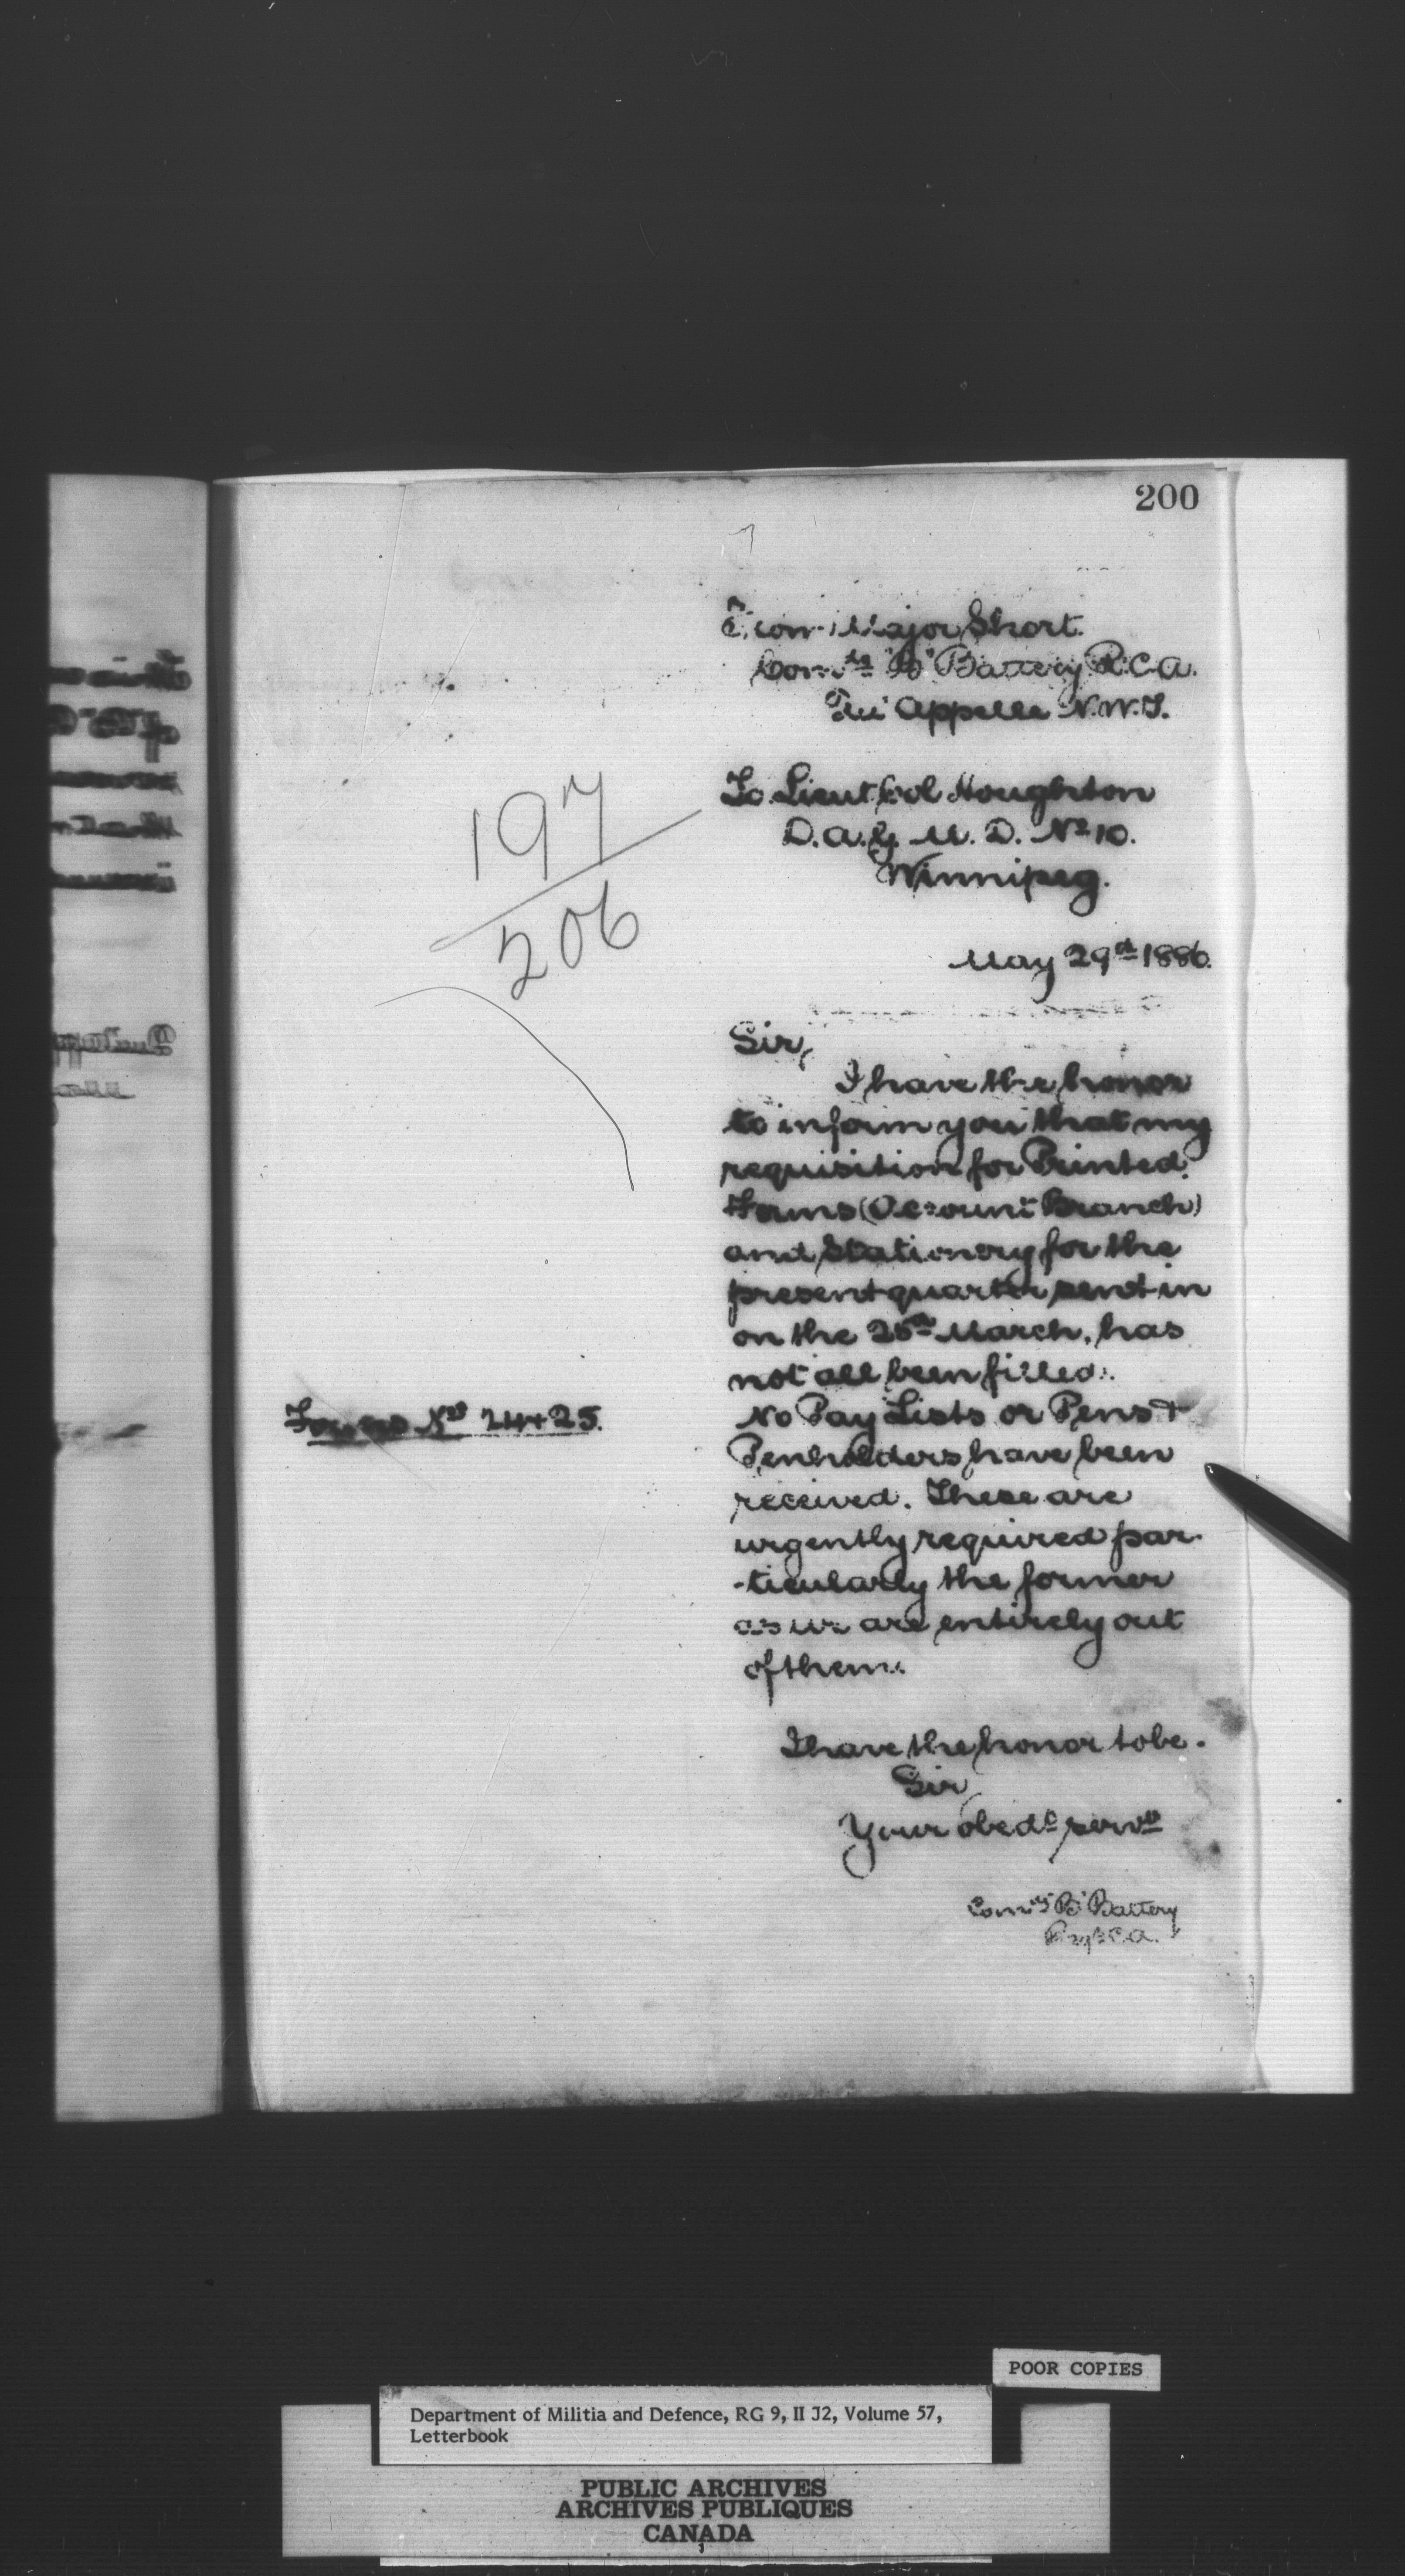 200
From Major Short.
Com'dg "B" Battery R.C.A.
Qu'Appelle N.W.T.
To Lieut Col Houghton
D.A.G. M.D. No 10.
Winnipeg.
197
206
May 29th 1886.
Sir,
I have the honor
to inform you that my
requisition for Printed
Forms (Account Branch)
and Stationery for the
present quarter sent in
on the 25th March, has
not all been filled.
Forms Nos 24 + 25.
No Pay Lists or Pens &
Penholders have been
received. These are
urgently required par-
-ticularly the former
as we are entirely out
of them.
I have the honor to be.
Sir,
Your obedt servt
Com'dg "B" Battery
C.A.
POOR COPIES
Department of Militia and Defence, RG 9, II J2, Volume 57,
Letterbook
PUBLIC ARCHIVES
ARCHIVES PUBLIQUES
CANADA